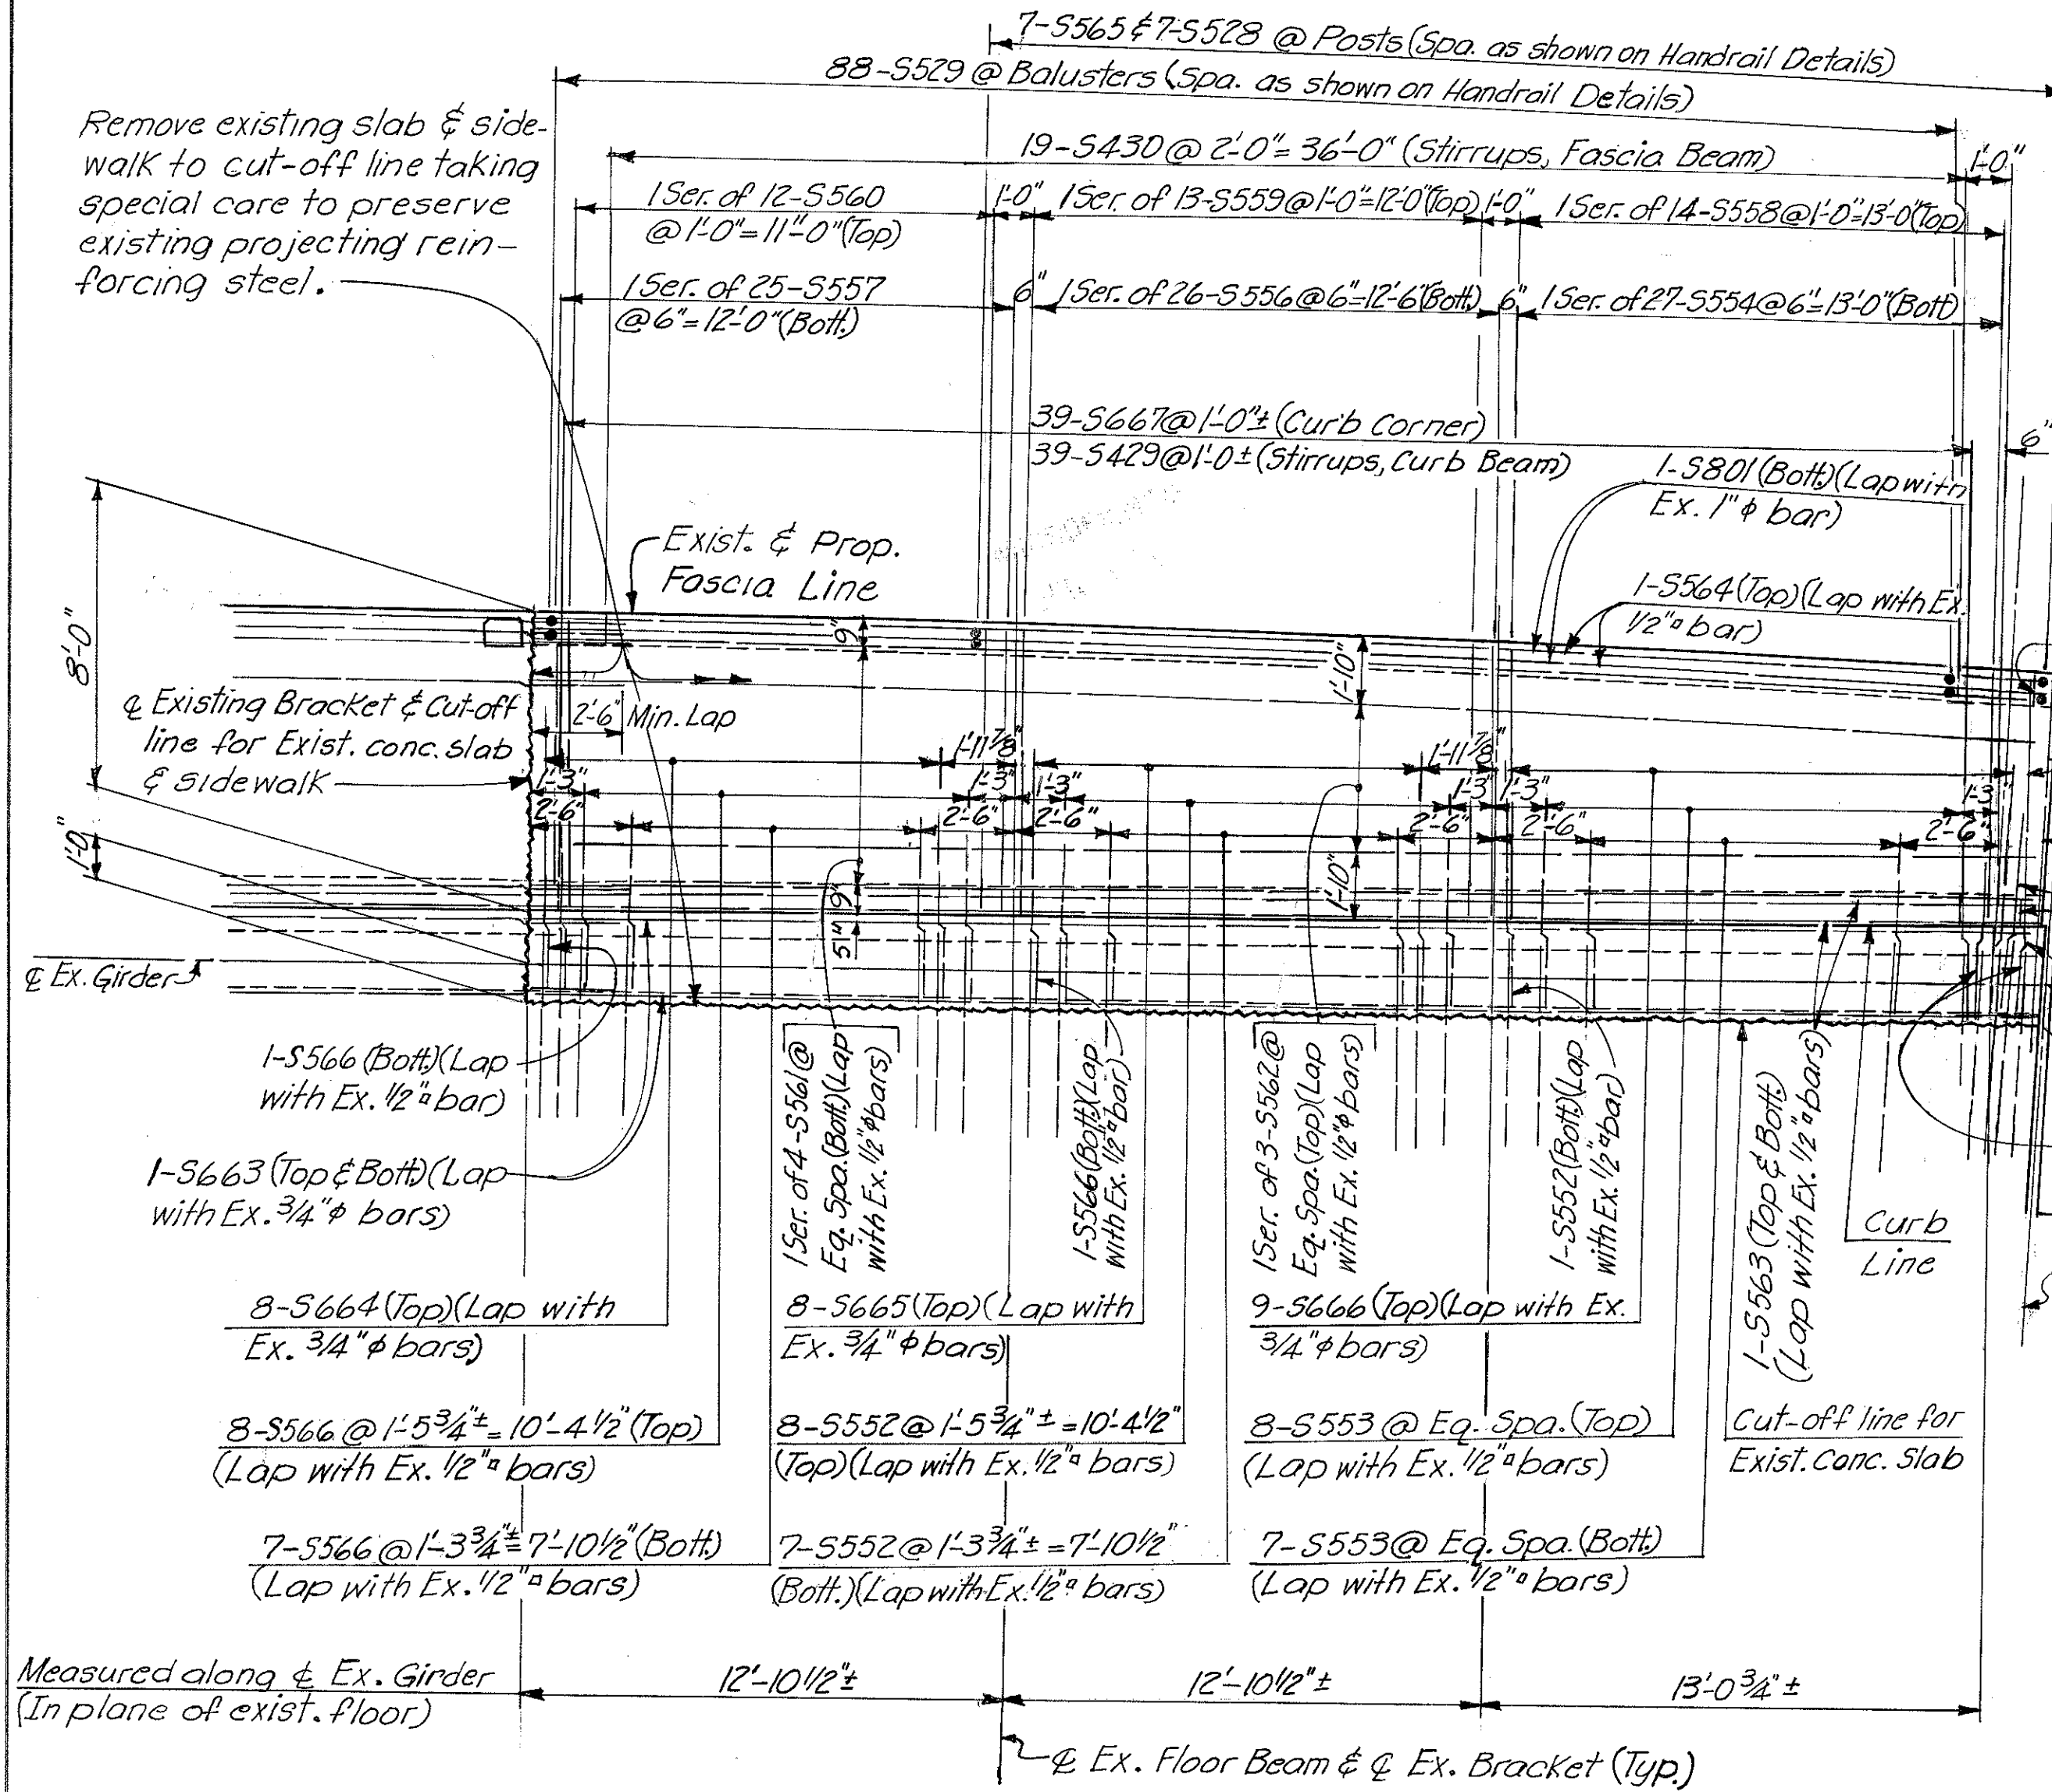 7-S565 & 7-S528 @ Posts (Spa. as shown on Handrail Details)
88-S529 @ Balusters (Spa. as shown on Handrail Details)
Remove existing slab & side-
walk to cut-off line taking
special care to preserve
existing projecting rein-
forcing steel.
19-S430 @ 2'-0" = 36'-0" (Stirrups, Fascia Beam)
1'-0"
1 Ser. of 12-S560
@ 1'-0" = 11'-0" (Top)
1'-0"
1 Ser. of 13-S559 @ 1'-0" = 12'-0" (Top)
1'-0"
1 Ser. of 14-S558 @ 1'-0" = 13'-0" (Top)
1 Ser. of 25-S557
@ 6" = 12'-0" (Bott.)
6"
1 Ser. of 26-S556 @ 6" = 12'-6" (Bott.)
6"
1 Ser. of 27-S554 @ 6" = 13'-0" (Bott)
39-S667 @ 1'-0" ± (Curb Corner)
39-S429 @ 1'-0 ± (Stirrups, Curb Beam)
6"
1-S801 (Bott.) (Lap with
Ex. 1" φ bar)
Exist. & Prop.
Fascia Line
1-S564 (Top) (Lap with Ex.
1/2" ▫ bar)
8'-0"
9"
1'-10"
℄ Existing Bracket & Cut-off
line for Exist. conc. slab
& sidewalk
2'-6" Min. Lap
1'-11 7/8"
1'-11 7/8"
1'-3"
1'-3"
1'-3"
1'-3"
1'-3"
1'-3
2'-6"
2'-6"
2'-6"
2'-6"
2'-6"
2'-6"
1'-0"
9"
1'-10"
5"
℄ Ex. Girder
1-S566 (Bott.) (Lap
with Ex. 1/2" ▫ bar)
1-S663 (Top & Bott.) (Lap
with Ex. 3/4" φ bars)
1 Ser. of 4-S561 @
Eq. Spa. (Bott.) (Lap
with Ex. 1/2" φ bars)
1-S566 (Bott.) (Lap
with Ex. 1/2" ▫ bar)
1 Ser. of 3-S562 @
Eq. Spa. (Top) (Lap
with Ex. 1/2" φ bars)
1-S552 (Bott.) (Lap
with Ex. 1/2" ▫ bar)
1-S563 (Top & Bott.)
(Lap with Ex. 1/2" ▫ bars)
Curb
Line
8-S664 (Top) (Lap with
Ex. 3/4" φ bars)
8-S665 (Top) (Lap with
Ex. 3/4" φ bars)
9-S666 (Top) (Lap with Ex.
3/4" φ bars)
8-S566 @ 1'-5 3/4" ± = 10'-4 1/2" (Top)
(Lap with Ex. 1/2" ▫ bars)
8-S552 @ 1'-5 3/4" ± = 10'-4 1/2"
(Top) (Lap with Ex. 1/2" ▫ bars)
8-S553 @ Eq. Spa. (Top)
(Lap with Ex. 1/2" ▫ bars)
Cut-off line for
Exist. Conc. Slab
7-S566 @ 1'-3 3/4" ± = 7'-10 1/2" (Bott.)
(Lap with Ex. 1/2" ▫ bars)
7-S552 @ 1'-3 3/4" ± = 7'-10 1/2"
(Bott.) (Lap with Ex. 1/2" ▫ bars)
7-S553 @ Eq. Spa. (Bott.)
(Lap with Ex. 1/2" ▫ bars)
Measured along ℄ Ex. Girder
(In plane of exist. floor)
12'-10 1/2" ±
12'-10 1/2" ±
13'-0 3/4" ±
℄ Ex. Floor Beam & ℄ Ex. Bracket (Typ.)